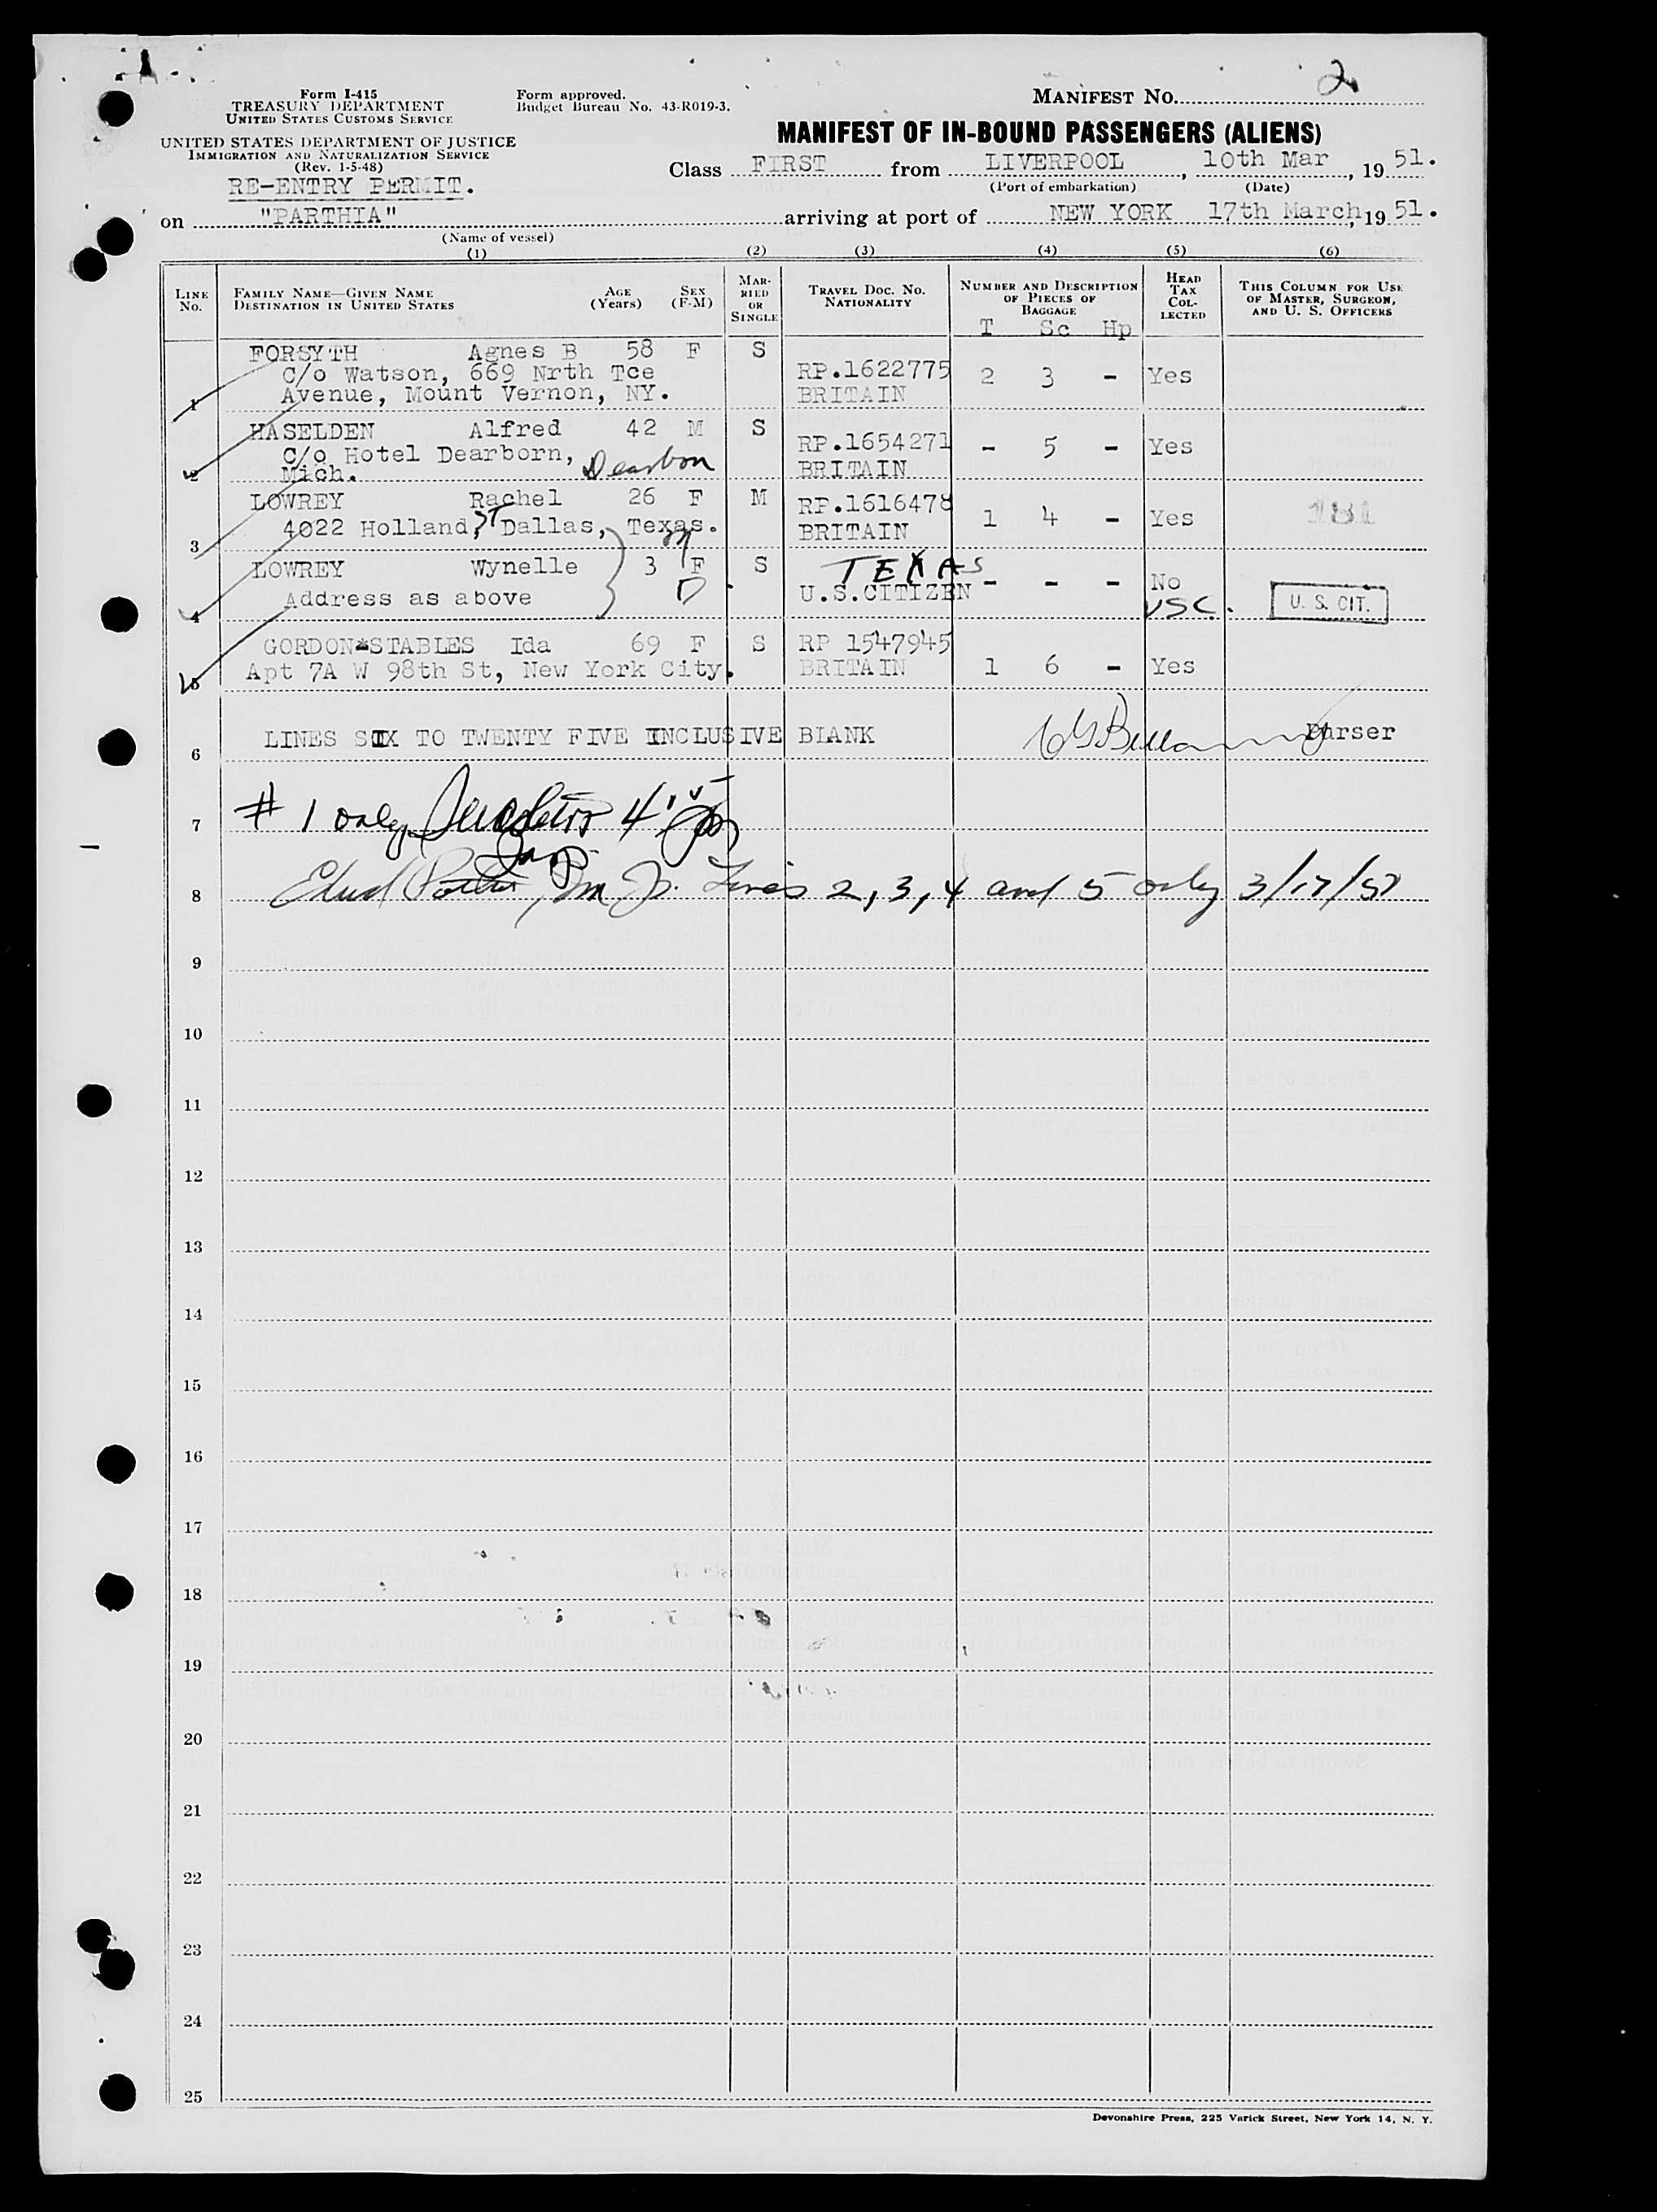 Form I-415
TREASURY DEPARTMENT
UNITED STATES CUSTOMS SERVICE
UNITED STATES DEPARTMENT OF JUSTICE
IMMIGRATION AND NATURALIZATION SERVICE
(Rev. 1-5-48)
RE-ENTRY PERMIT.
Form approved.
Budget Bureau No. 43-R019-3.
MANIFEST No. 2
MANIFEST OF IN-BOUND PASSENGERS (ALIENS)
Class FIRST from LIVERPOOL, 10th Mar, 1951.
(Port of embarkation) (Date)
on "PARTHIA" arriving at port of NEW YORK 17th March, 1951.
(Name of vessel)
(1) (2) (3) (4) (5) (6)
LINE No. FAMILY NAME—GIVEN NAME DESTINATION IN UNITED STATES AGE (Years) SEX (F-M) MARRIED OR SINGLE TRAVEL DOC. No. NATIONALITY NUMBER AND DESCRIPTION OF PIECES OF BAGGAGE HEAD TAX COLLECTED THIS COLUMN FOR USE OF MASTER, SURGEON, AND U. S. OFFICERS
T Sc Hp
FORSYTH Agnes B 58 F S
C/o Watson, 669 Nrth Tce RP.1622775 2 3 - Yes
1 Avenue, Mount Vernon, NY. BRITAIN
HASELDEN Alfred 42 M S
C/o Hotel Dearborn, Dearborn RP.1654271 - 5 - Yes
2 Mich. BRITAIN
LOWREY Rachel 26 F M RP.1616478
4022 Holland, ST Dallas, Texas. BRITAIN 1 4 - Yes 181
3
LOWREY Wynelle 3 F S TEXAS
Address as above U.S.CITIZEN - - - No
4 USC. U. S. CIT.
GORDON*STABLES Ida 69 F S RP 1547945
Apt 7A W 98th St, New York City. BRITAIN 1 6 - Yes
5
6 LINES SIX TO TWENTY FIVE INCLUSIVE BLANK Purser
7 # 1 only
8 Lines 2, 3, 4 and 5 only 3/17/51
9
10
11
12
13
14
15
16
17
18
19
20
21
22
23
24
25
Devonshire Press, 225 Varick Street, New York 14, N. Y.